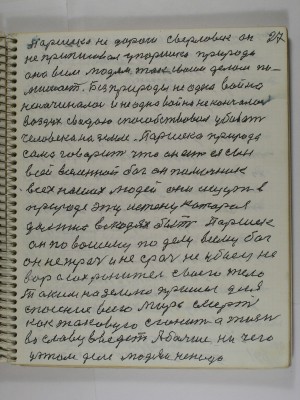 Паршек не дорогой сверловек он 27
не приписовал упаршека природа
она всем людям такова своим делом по-
могает. Без природы не одна война
неначиналась и не одна война не кончалась
воздух сводою способствовал убивать
человека на земле. Паршека природа
сама говорит что он есть я сын
всей вселенной бог он помощник
всех наших людей они ищут в
природе эту истену которая
должна в людях быть Паршек
он по вашему по делу всему бог
он не врач и не срач не убийца не
вор а сохранитель своего тела
Таким на землю пришел для
спасения всего мира смерть
как таковую сгонит а жизнь
во славу введет А больше ничего
у этом деле людям не надо